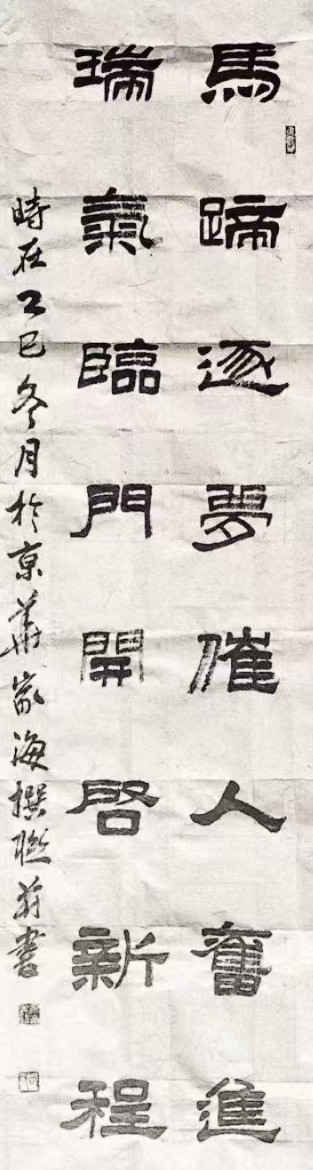 馬蹄逐夢催人奮進
瑞氣臨門開啓新程
時在乙巳冬月於京華家海撰聯并書